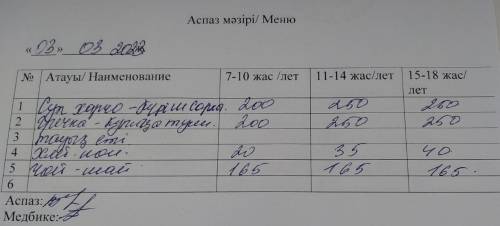 Аспаз мәзірі/ Меню
«03» 03 2023
№ Атауы/ Наименование 7-10 жас /лет 11-14 жас/лет 15-18 жас/ лет
1 Суп харчо - Күріш сорпа. 200 250 250
2 Гречка - 200 250 250
3 тауық еті
4 Хлеб нан. 20 35 40
5 Чай - шай 165 165 165.
6
Аспаз:
Медбике: